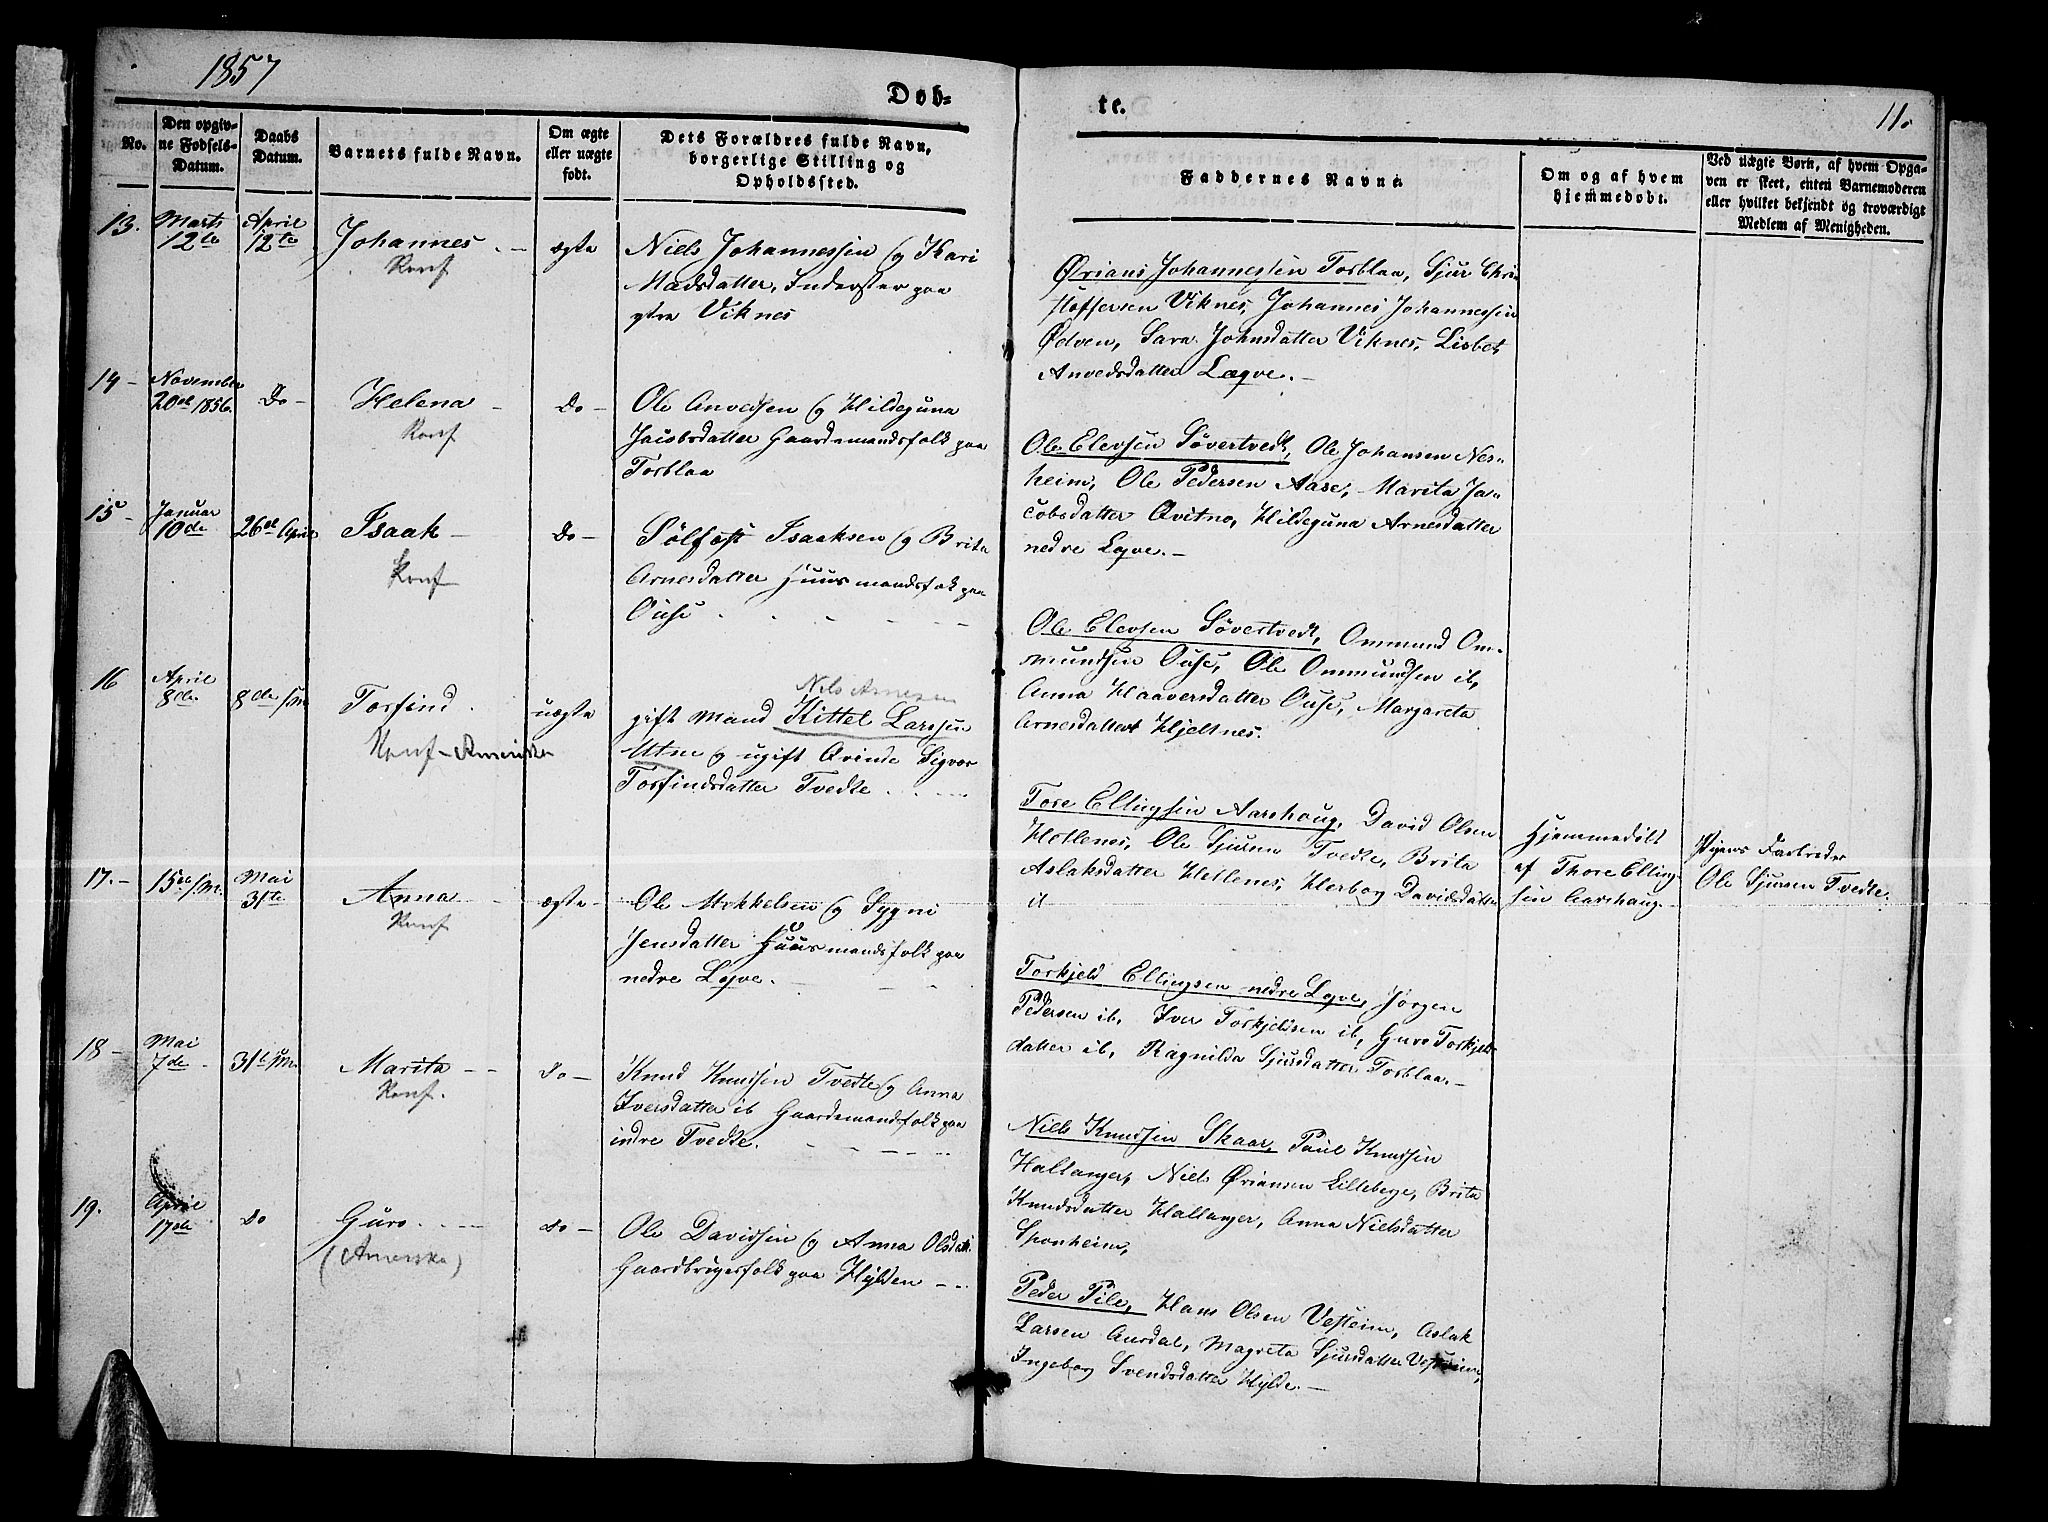 1857
Døb=
te.
11.
No.
Den opgiv-
ne Fødsels-
Datum.
Daabs
Datum.
Barnets fulde Navn.
Om ægte
eller uægte
født.
Dets Forældres fulde Navn,
borgerlige Stilling og
Opholdssted.
Faddernes Navne.
Om og af hvem
hjemmedøbt.
Ved uægte Børn, af hvem Opga-
ven er skeet, enten Barnemoderen
eller hvilket bekjendt og troværdigt
Medlem af Menigheden.
13. Marts
12te
April
12te
Johannes
Konf
ægte
Niels Johannessen og Kari
Madsdatter, Inderster paa
ytre Viknes
Ørians Johannessen Torblaa, Sjur Chri
stoffersen Viknes, Johannes Johannessen
Ødven, Sara Johnsdatter Viknes, Lisbet
Anvedsdatter Lægve. -
14 - November
20de 1856.
Do -
Helena -
Konf
Do -
Ole Anvedsen og Hildeguna
Jacobsdatter Gaardemandsfolk paa
Torblaa
Ole Elevsen Søvertvedt, Ole Johansen Nes-
heim, Ole Pedersen Aase, Marita Ja-
cobsdatter Qvitno, Hildeguna Arnesdatter
nedre Legve. -
15 - Januar
10de
26de April
Isaak -
Konf
Do -
Sølfæst Isaaksen og Brita
Arnesdatter Huusmandsfolk paa
Ouse
Ole Elevsen Søvertvedt, Ommund Om-
mundsen Ouse, Ole Ommundsen ib,
Anna Haaversdatter Ouse, Margareta
Arnesdatter Hjeltnes.
16 April
8de
8de s/M
Torfind.
Konf - Amerika
uægte
Nils Arnesen
gift Mand Kittel Larssen
Utne og ugift Qvinde Sigvor
Torfindsdatter Tvedte
Tore Ellingsen Aarhoug, David Olsen
Hetlenes, Ole Sjursen Tvedte, Brita
Aslaksdatter Hetlenes, Herborg Davidsdatter
ib
Hjemmedøbt
af Thore Elling-
sen Aarhaug.
Pigens Farbroder
Ole Sjursen Tvedte.
17. - 15de s/M.
Mai
31te
Anna
Konf
ægte -
Ole Mikkelsen og Sygni
Jensdatter Huusmandsfolk paa
nedre Legve.
Torkjeld Ellingsen nedre Legve, Jørgen
Pedersen ib, Iver Torkjeldsen ib, Guro Torkjels
datter ib, Ragnilda Sjursdatter Torblaa. -
18 - Mai
7de
31te s/M.
Marita
Konf.
Do -
Knud Knudsen Tvedte og Anna
Iversdatter ib Gaardemandsfolk paa
indre Tvedte.
Niels Knudsen Skaar, Paul Knudsen
Hallanger, Niels Øriansen Lilleberge, Brita
Knudsdatter Hallanger, Anna Nielsdatter
Sponheim,
19. April
17de
Do
Guro.
(Amerika)
Do -
Ole Davidsen og Anna Olsdatt.
Gaardbrugerfolk paa Hylden
Peder Pile, Hans Olsen Vestreim, Aslak
Larsen Ausdal, Magreta Sjursdatter Vestreim,
Ingeborg Svendsdatter Hylde. -